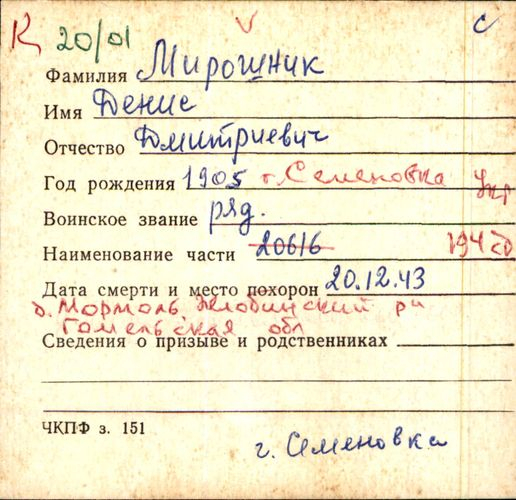 К 20/01 V С
Фамилия Мирошник
Имя Денис
Отчество Дмитриевич
Год рождения 1905 г. Семеновка Укр
Воинское звание ряд.
Наименование части 20616 194 сд
Дата смерти и место похорон 20.12.43
д. Мормоль, Жлобинский р-н
Гомельская обл
Сведения о призыве и родственниках
ЧКПФ з. 151
г. Семеновка